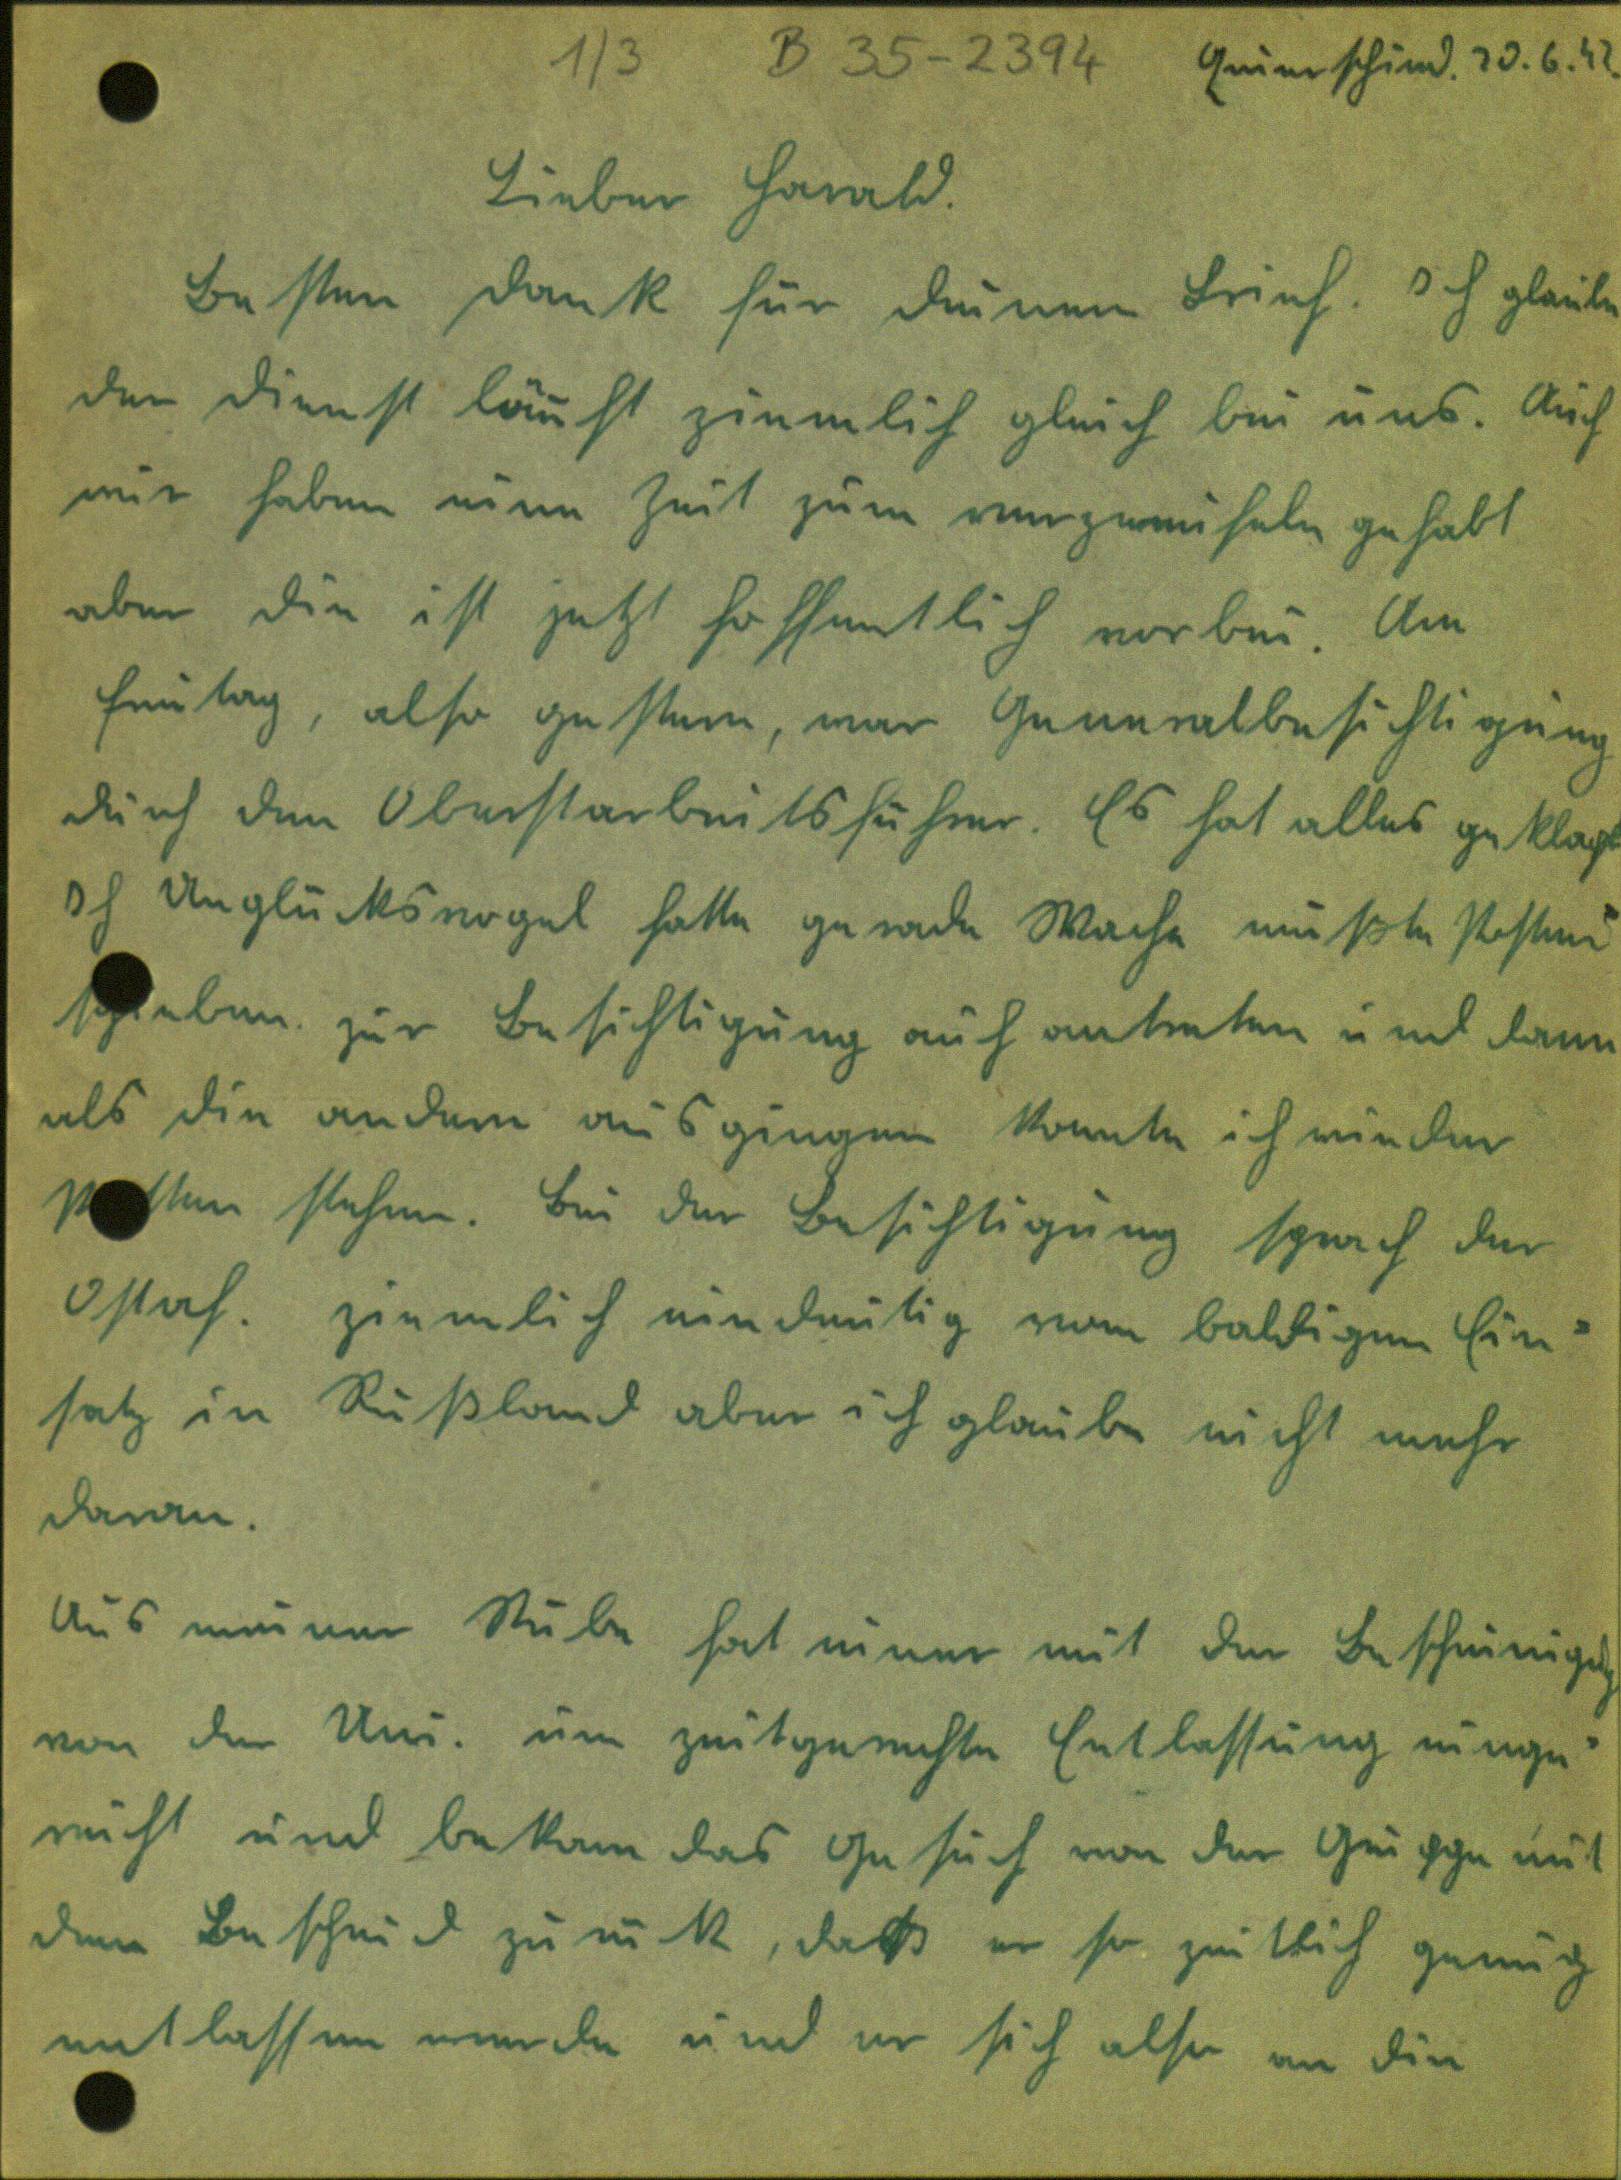 1/3 B 35-2394 Quierschied. 20.6.42.
Lieber Harald.
Besten Dank für deinen Brief. Ich glaube
der Dienst läuft ziemlich gleich bei uns. Auch
wir haben eine Zeit zum verzweifeln gehabt
aber die ist jetzt hoffentlich vorbei. Am
Freitag, also gestern, war Generalbesichtigung
durch den Oberstarbeitsführer. Es hat alles geklapt
Ich Unglücksvogel hatte gerade Wache mußte Posten
schieben. zur Besichtigung auch antreten und dann
als die andern ausgingen konnte ich wieder
Posten stehen. Bei der Besichtigung sprach der
Ostaf. ziemlich eindeutig vom baldigen Ein=
satz in Rußland aber ich glaube nicht mehr
daran.
Aus meiner Stube hat einer mit der Bescheinigung
von der Uni. um zeitgerechte Entlassung einge=
reicht und bekam das Gesuch von der Gruppe mit
dem Bescheid zurück, daß er so zeitlich genug
entlassen werde und er sich also an die